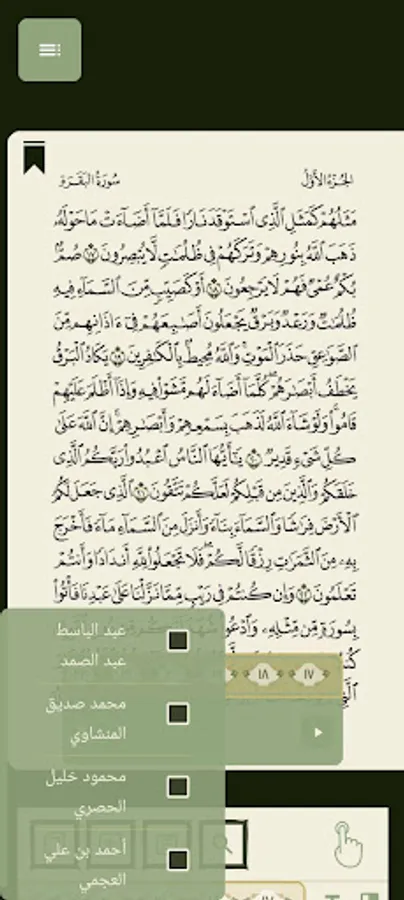 الجزء الأول
سورة البقرة
مَثَلُهُمْ كَمَثَلِ ٱلَّذِى ٱسْتَوْقَدَ نَارًا فَلَمَّآ أَضَآءَتْ مَا حَوْلَهُۥ
ذَهَبَ ٱللَّهُ بِنُورِهِمْ وَتَرَكَهُمْ فِى ظُلُمَـٰتٍ لَّا يُبْصِرُونَ ١٧ صُمٌّۢ
بُكْمٌ عُمْىٌ فَهُمْ لَا يَرْجِعُونَ ١٨ أَوْ كَصَيِّبٍ مِّنَ ٱلسَّمَآءِ فِيهِ
ظُلُمَـٰتٌ وَرَعْدٌ وَبَرْقٌ يَجْعَلُونَ أَصَـٰبِعَهُمْ فِىٓ ءَاذَانِهِم مِّنَ
ٱلصَّوَٰعِقِ حَذَرَ ٱلْمَوْتِ ۚ وَٱللَّهُ مُحِيطٌۢ بِٱلْكَـٰفِرِينَ ١٩ يَكَادُ ٱلْبَرْقُ
يَخْطَفُ أَبْصَـٰرَهُمْ ۖ كُلَّمَآ أَضَآءَ لَهُم مَّشَوْا۟ فِيهِ وَإِذَآ أَظْلَمَ عَلَيْهِمْ
قَامُوا۟ ۚ وَلَوْ شَآءَ ٱللَّهُ لَذَهَبَ بِسَمْعِهِمْ وَأَبْصَـٰرِهِمْ ۚ إِنَّ ٱللَّهَ عَلَىٰ
كُلِّ شَىْءٍ قَدِيرٌ ٢٠ يَـٰٓأَيُّهَا ٱلنَّاسُ ٱعْبُدُوا۟ رَبَّكُمُ ٱلَّذِى
خَلَقَكُمْ وَٱلَّذِينَ مِن قَبْلِكُمْ لَعَلَّكُمْ تَتَّقُونَ ٢١ ٱلَّذِى جَعَلَ لَكُمُ
ٱلْأَرْضَ فِرَٰشًا وَٱلسَّمَآءَ بِنَآءً وَأَنزَلَ مِنَ ٱلسَّمَآءِ مَآءً فَأَخْرَجَ
بِهِۦ مِنَ ٱلثَّمَرَٰتِ رِزْقًا لَّكُمْ ۖ فَلَا تَجْعَلُوا۟ لِلَّهِ أَندَادًا وَأَنتُمْ
تَعْلَمُونَ ٢٢ وَإِن كُنتُمْ فِى رَيْبٍ مِّمَّا نَزَّلْنَا عَلَىٰ عَبْدِنَا فَأْتُوا۟
بِسُورَةٍ مِّن مِّثْلِهِۦ وَٱدْعُوا۟
عبد الباسط
عبد الصمد
١٧ ١٨
محمد صديق
المنشاوي
محمود خليل
الحصري
أحمد بن علي
العجمي